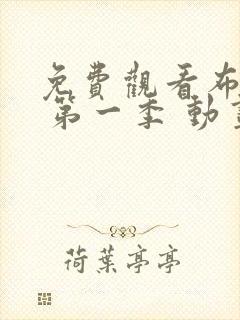 免費觀看布
第一季 動
荷葉亭亭